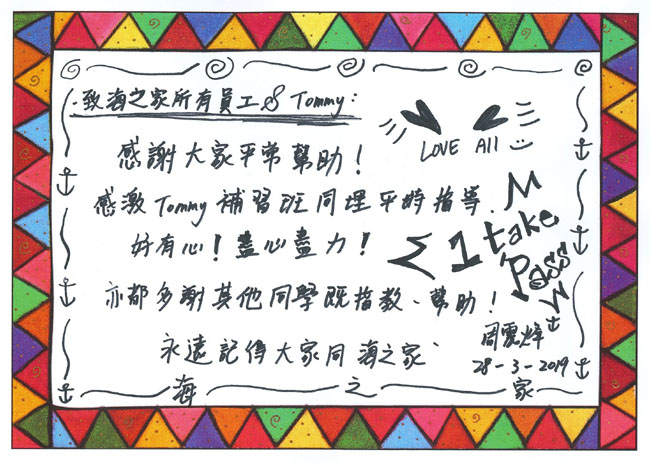 致海之家所有員工 & Tommy:
LOVE All
感謝大家平常幫助!
感激 Tommy 補習班同埋平時指導、
好有心!盡心盡力!
1 take
Pass
亦都多謝其他同學既指教、幫助!
永遠記得大家同海之家
28-3-2019
海之家